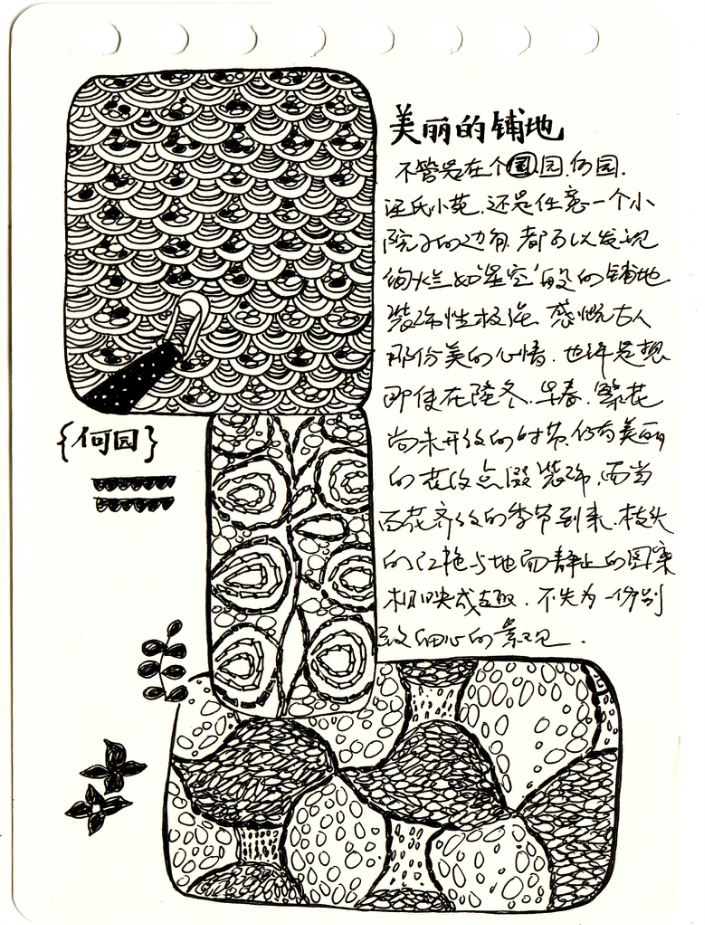 美丽的铺地
不管是在个园、何园、
汪氏小苑、还是任意一个小
院子的边角，都可以发现
绚烂如星空般的铺地
装饰性极强。感慨古人
那份美的心情，也许是想
即使在隆冬、早春，繁花
尚未开放的时节，仍有美丽
的花纹点缀装饰，而当
百花齐放的季节到来，枝头
的红艳与地面静止的图案
相映成趣，不失为一份别
致细心的景观。
{何园}